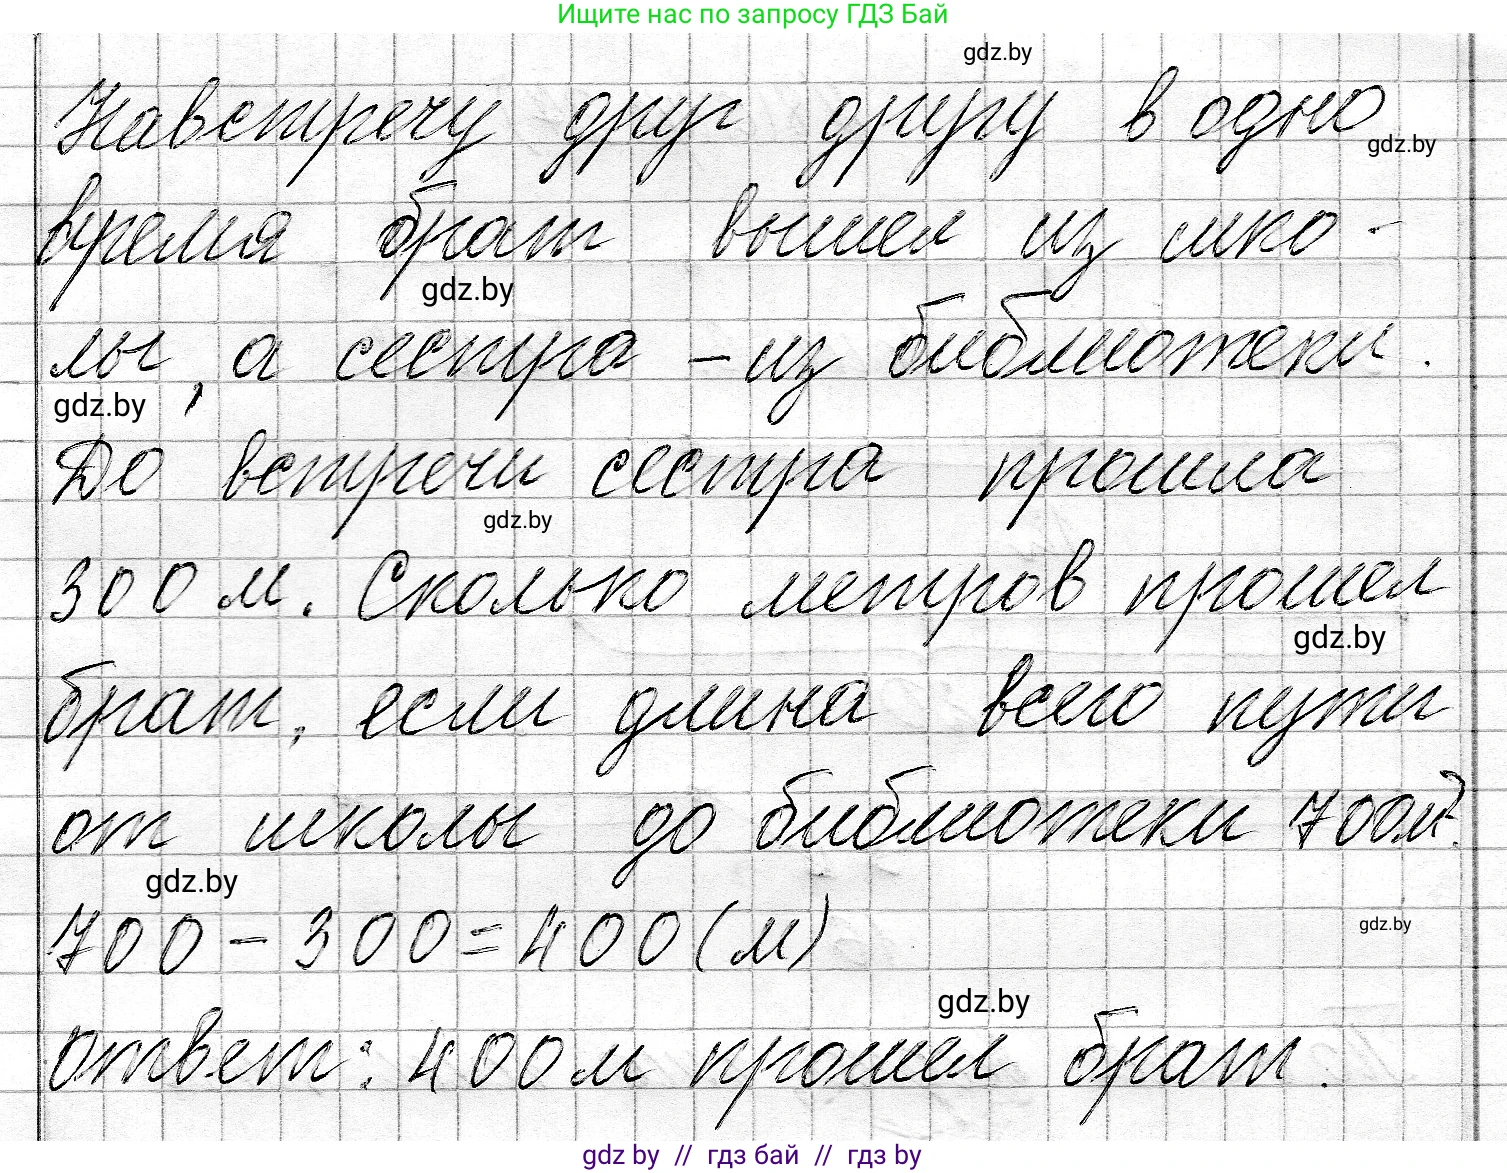 Ищите нас по запросу ГДЗ Бай
gdz.by
Навстречу друг другу в одно
gdz.by
время брат вышел из шко-
gdz.by
лы, а сестра – из библиотеки.
gdz.by
До встречи сестра прошла
gdz.by
300 м. Сколько метров прошел
gdz.by
брат, если длина всего пути
от школы до библиотеки 700м?
gdz.by
700 - 300 = 400 (м)
gdz.by
gdz.by
Ответ: 400 м прошел брат.
gdz.by // гдз бай // гдз by